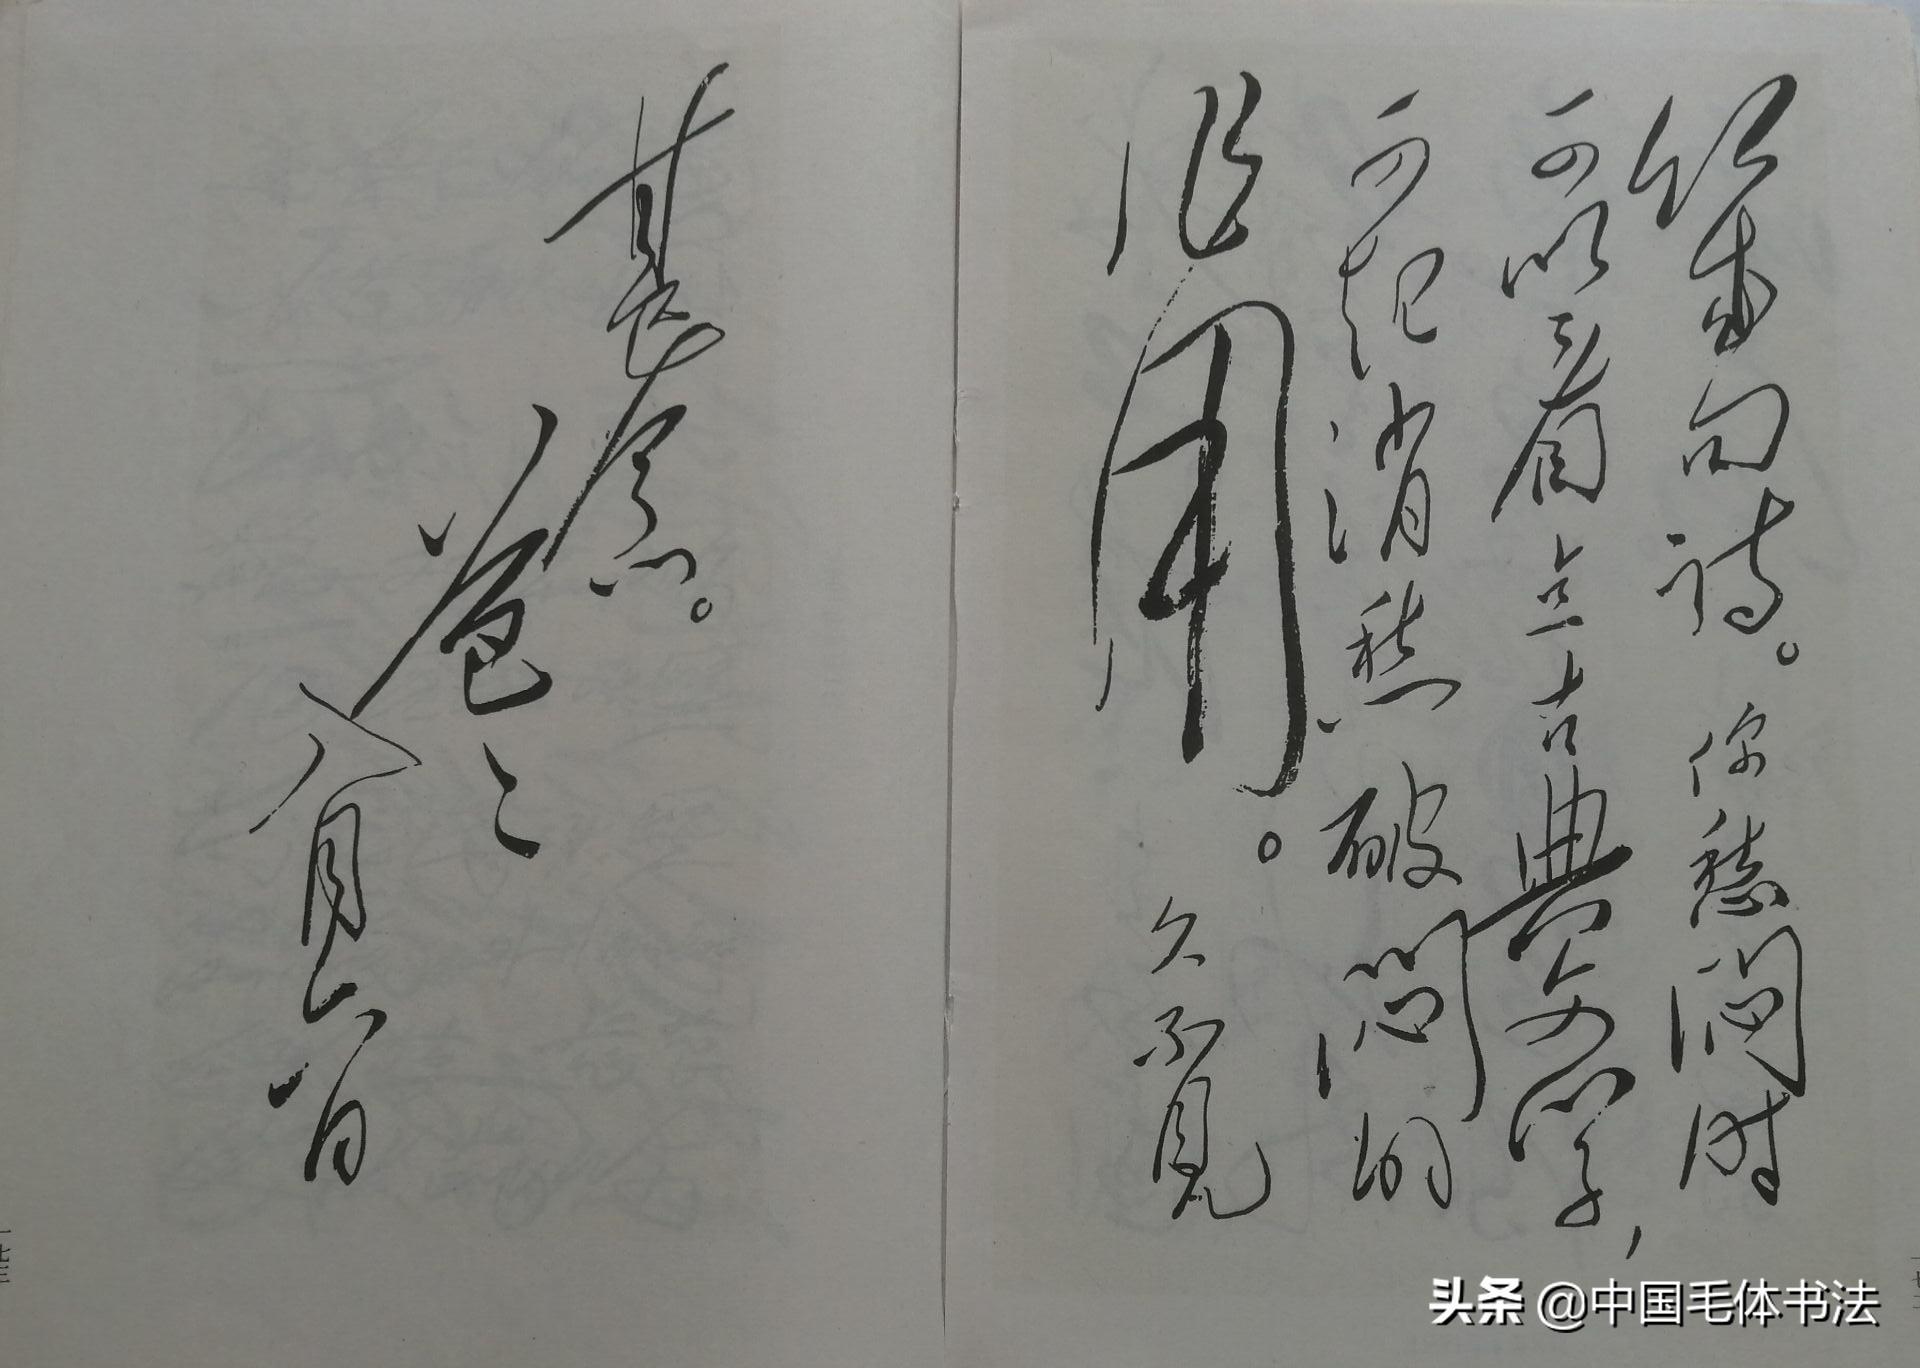 的几句诗。你愁闷时
可以看点古典文学，
可起消愁破闷的
作用。久不见
甚念。
爸〻
八月六日
一七三
头条 @中国毛体书法